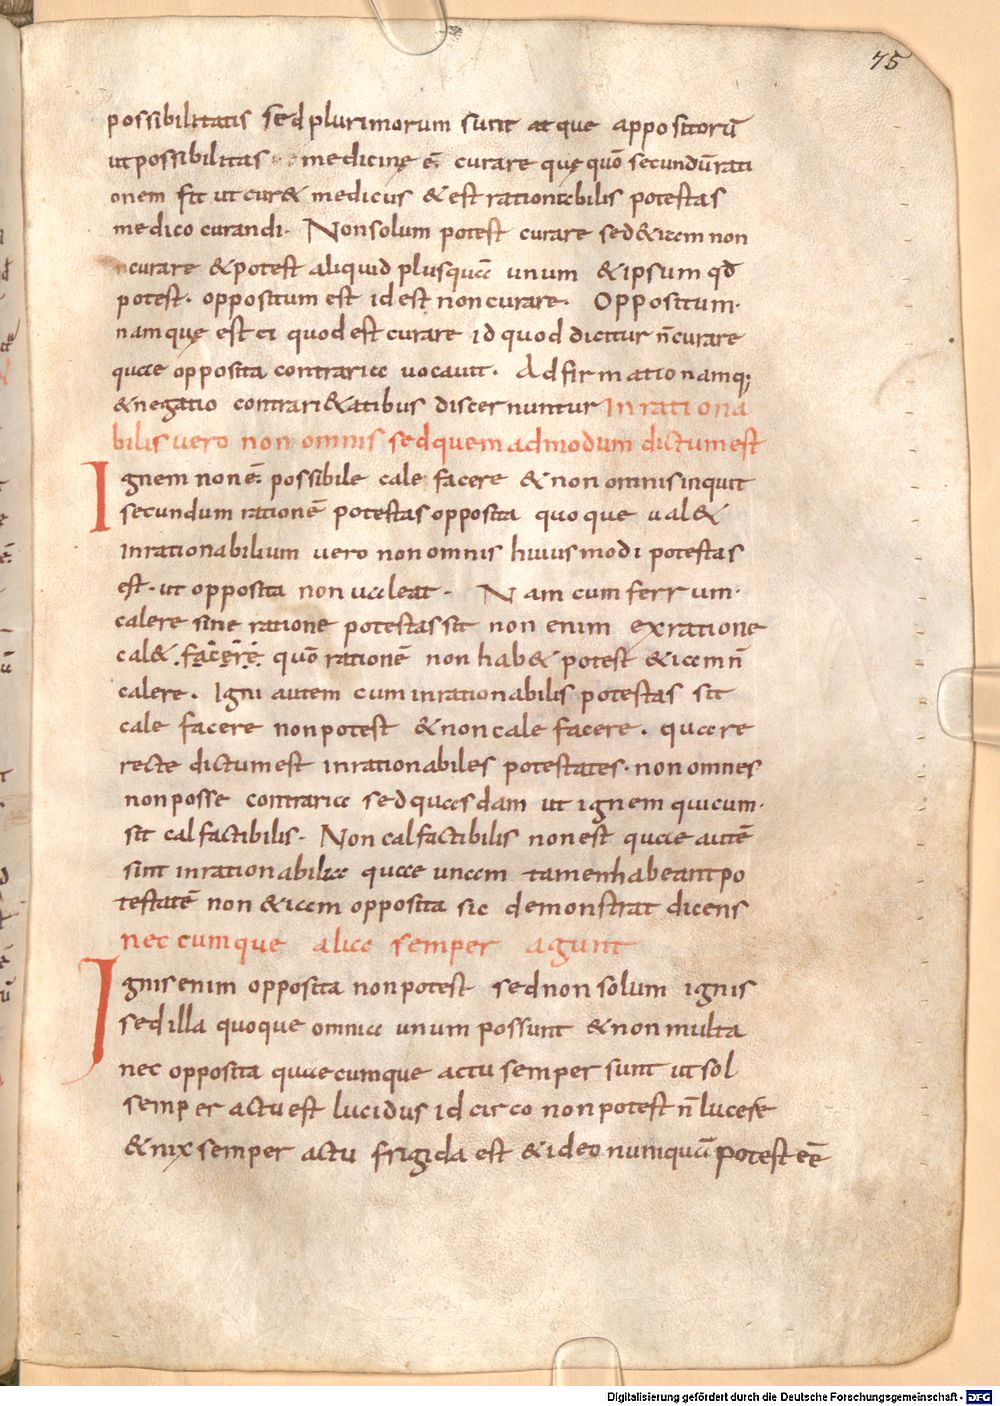 75
possibilitatis sed plurimorum sunt atque appositorū
ut possibilitas medicinę ē curare quę quō secundū rati
onem fit ut cur& medicus & est rationabilis potestas
medico curandi. Non solum potest curare sed & iam non
curare & potest aliquid plusquā unum & ipsum qđ
potest. oppositum est id est non curare. Oppositum.
namque est ei quod est curare id quod dicitur n̄ curare
quae opposita contraria uocauit. Adfirmatio namq;
& negatio contrari&atibus discernuntur In rationa
bilis uero non omnis sed quemadmodum dictum est
Ignem non ē possibile cale facere & non omnis inquit
secundum rationē potestas opposita quoque ual&
inrationabilium uero non omnis huiusmodi potestas
est. ut opposita non ualeat. Nam cum ferrum.
calere sine ratione potestas sit non enim ex ratione
cal& .facere. quō rationē non hab& potest & iam n̄
calere. Igni autem cum inrationabilis potestas sit
cale facere non potest & non cale facere. quare
recte dictum est inrationabiles potestates. non omnes
non posse contraria sed quasdam ut ignem qui cum.
sit calfactibilis. Non calfactibilis non est quae autē
sint inrationabilia quae unam tamen habeant po
testatē non & iam opposita sic demonstrat dicens
nec cumque alia semper agunt
Ignis enim opposita non potest sed non solum ignis
sed illa quoque omnia unum possunt & non multa
nec opposita quaecumque actu semper sunt ut sol
semper actu est lucidus id circo non potest n̄ lucere
& nix semper actu frigida est & ideo numquā potest eē
Digitalisierung gefördert durch die Deutsche Forschungsgemeinschaft - DFG